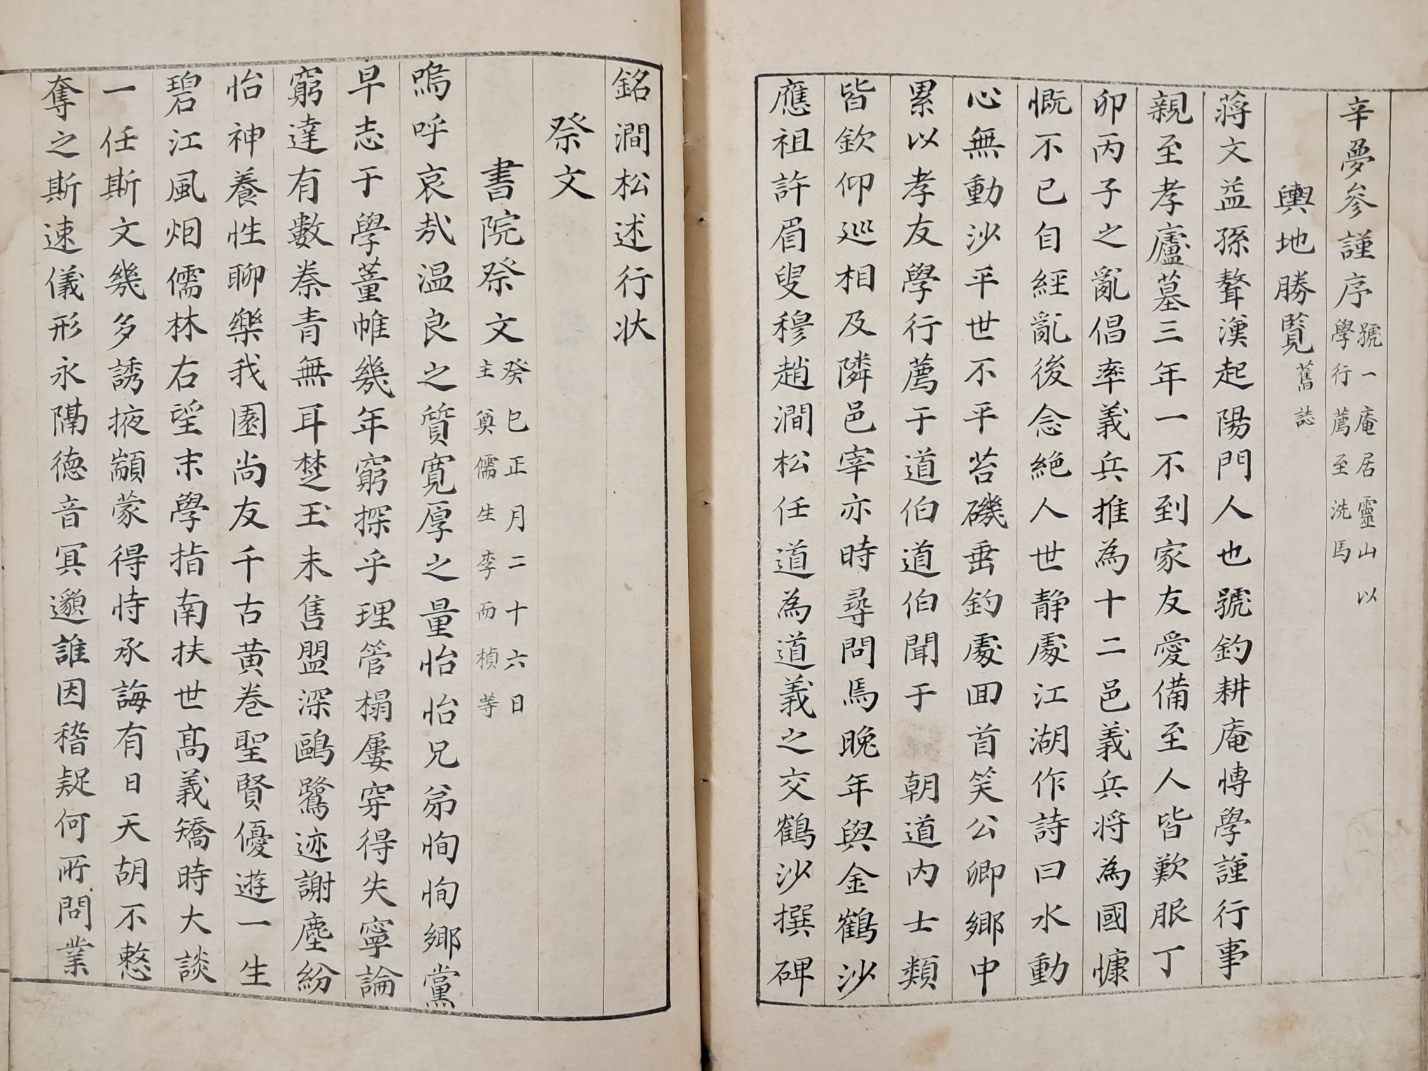 辛夢參謹序 號一庵居靈山以
學行薦至洗馬
輿地勝覧 舊誌
蔣文益孫聱漢起陽門人也號釣耕庵博學謹行事
親至孝廬墓三年一不到家友愛備至人皆歎服丁
卯丙子之亂倡率義兵推為十二邑義兵將為國慷
慨不已自經亂後念絶人世静處江湖作詩曰水動
心無動沙平世不平苔磯垂釣處回首笑公卿鄉中
累以孝友學行薦于道伯道伯聞于 朝道內士類
皆欽仰巡相及隣邑宰亦時尋問焉晚年與金鶴沙
應祖許眉叟穆趙澗松任道為道義之交鶴沙撰碑
銘澗松述行状
祭文
書院祭文 癸巳正月二十六日
主奠儒生李而楨等
嗚呼哀㢤温良之質寬厚之量怡怡兄弟恂恂鄉黨
早志于學董帷幾年窮探乎理管榻屢穿得失寧論
窮達有數秦青無耳楚玉未售盟深鷗鷺迹謝塵紛
怡神養性聊樂我園尚友千古黄卷聖賢優遊一生
碧江風烟儒林右望末學指南扶世髙義矯時大談
一任斯文幾多誘掖顓蒙得恃承誨有日天胡不憖
奪之斯速儀形永隔德音冥邈誰因稽疑何所問業